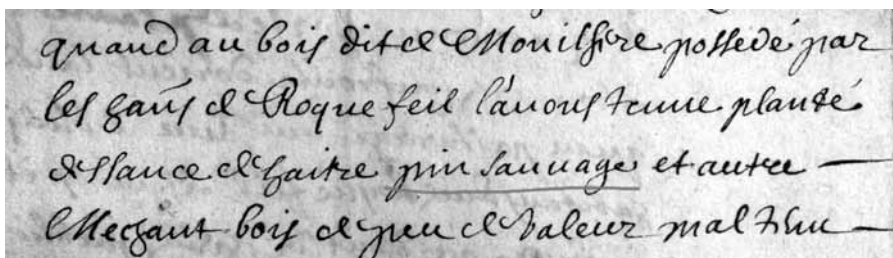 quand au bois dit de Mouilhere possedé par
les hañs de Roquefeil l'auons treuué planté
dessance de haitre pin sauuage et autre
Mechant bois de peu de Valeur mal tenu